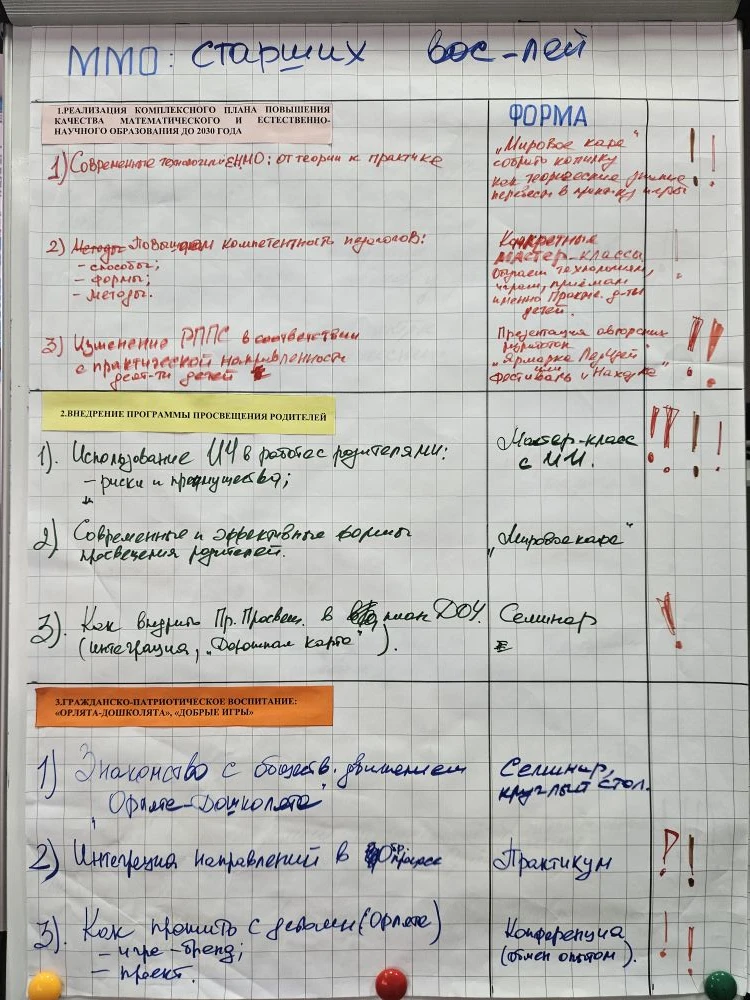 ММО: старших вос-лей
1.РЕАЛИЗАЦИЯ КОМПЛЕКСНОГО ПЛАНА ПОВЫШЕНИЯ
КАЧЕСТВА МАТЕМАТИЧЕСКОГО И ЕСТЕСТВЕННО-
НАУЧНОГО ОБРАЗОВАНИЯ ДО 2030 ГОДА
ФОРМА
1) Современные технологии ЕНМО: от теории к практике
„Мировое кафе"
собрать копилку
как теоретические знания
перевести в практику игры
!!
2) Методы Повышаем компетентность педагогов:
- способы;
- формы;
- методы.
Конкретные
мастер-классы
технологиям,
играм, приёмам
именно Практ. д-ти
детей.
!
3) Изменение РППС в соответствии
с практической направленности
деят-ти детей
Презентация авторских
"Ярмарка
или
Фестиваль "Находка"
!!
2.ВНЕДРЕНИЕ ПРОГРАММЫ ПРОСВЕЩЕНИЯ РОДИТЕЛЕЙ
1). Использование ИИ в работе с родителями:
- риски и преимущества;
Мастер-класс
с ИИ.
!!!!
2) Современные и эффективные формы
просвещения родителей.
„Мировое кафе"
3). Как внедрить Пр. Просвещ. в план ДОУ.
(интеграция, „Дорожная карта").
Семинар
!
3.ГРАЖДАНСКО-ПАТРИОТИЧЕСКОЕ ВОСПИТАНИЕ:
«ОРЛЯТА-ДОШКОЛЯТА», «ДОБРЫЕ ИГРЫ»
1) Знакомство с обществ. движением
„Орлята-Дошколята"
Семинар,
круглый стол.
2) Интеграция направлений в обр. процесс
Практикум
!!
3). Как прожить с детьми (Орлята)
- игра-бренд;
- проект.
Конференция
(обмен опытом).
!!